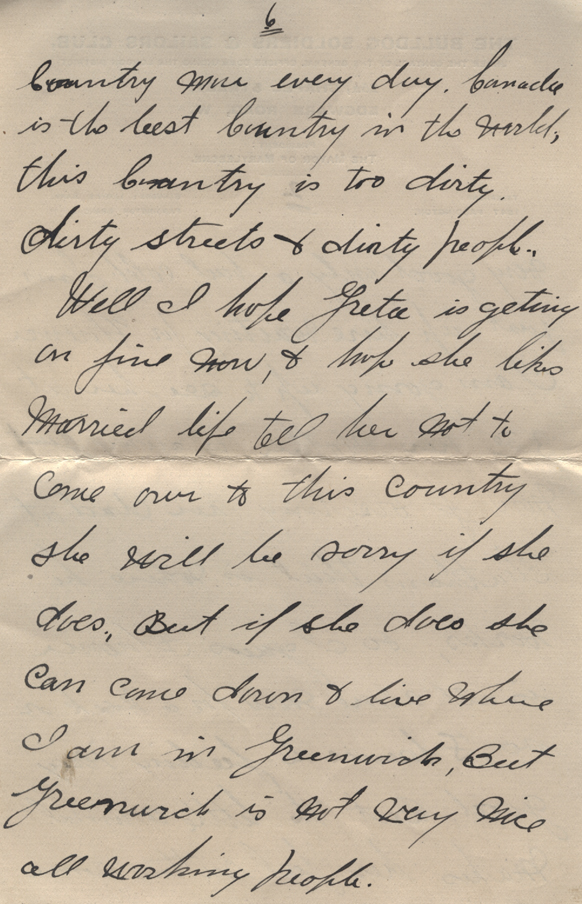 6
Country more every day. Canada
is the best Country in the world,
this Country is too dirty.
dirty streets & dirty people.
Well I hope Greta is geting
on fine now, & hope she likes
Married life tell her not to
come over to this country
she will be sorry if she
does, But if she does she
can come down & live where
I am in Greenwich, But
Greenwich is not very nice
all working people.